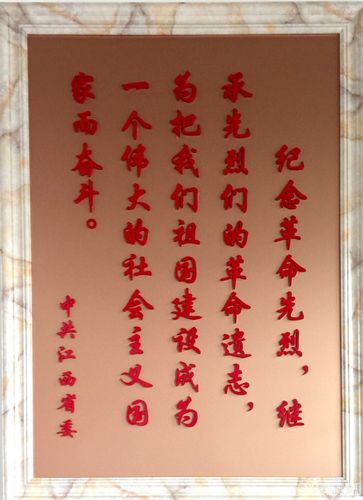 纪念革命先烈，继
承先烈们的革命遗志，
为把我们祖国建设成为
一个伟大的社会主义国
家而奋斗。
中共江西省委